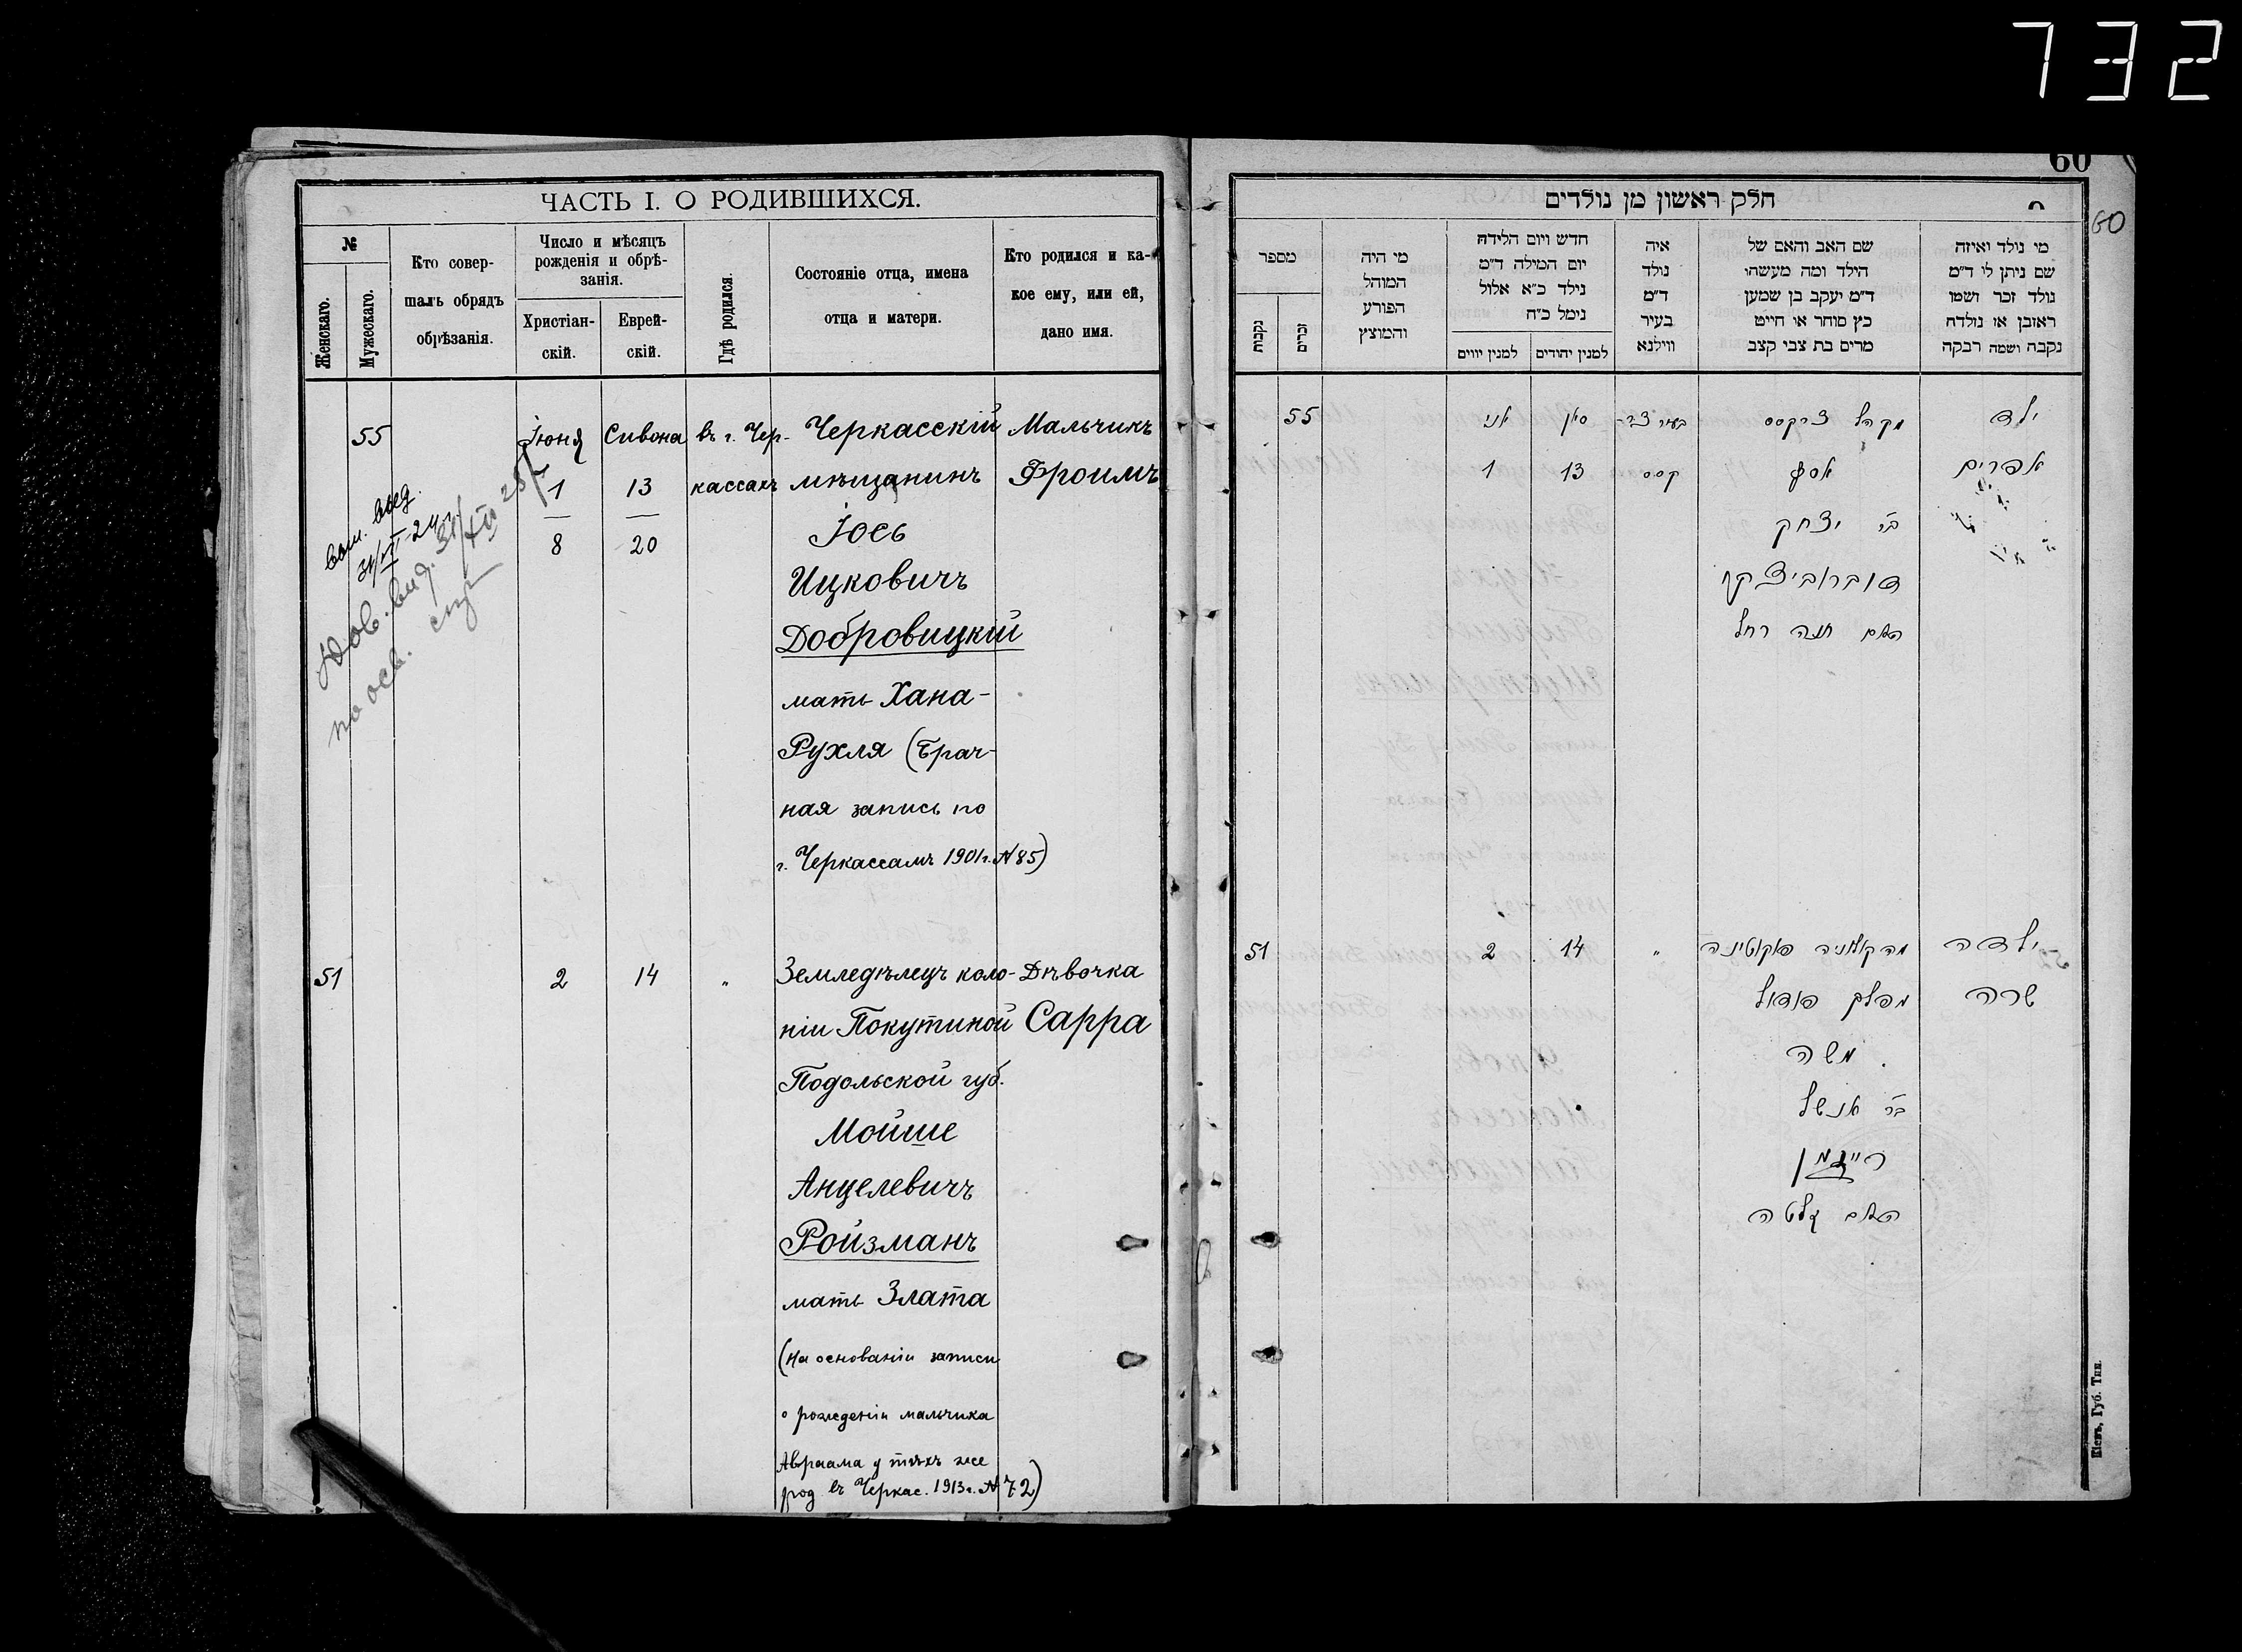 732
ЧАСТЬ I. О РОДИВШИХСЯ.
№
Женскаго.
Мужескаго.
Кто совер-
шалъ обрядъ
обрѣзанія.
Число и мѣсяцъ
рожденія и обрѣ-
занія.
Христіан-
скій.
Еврей-
скій.
Гдѣ родился.
Состояніе отца, имена
отца и матери.
Кто родился и ка-
кое ему, или ей,
дано имя.
55 Іюня Сивона въ г. Чер- Черкасскій Мальчикъ
1 13 кассахъ мѣщанинъ Фроимъ
8 20 Іось
Ицковичъ
Добровицкій
мать Хана-
Рухля (Брач-
ная запись по
г. Черкассамъ 1901 г. № 85)
51 2 14 " Земледѣлецъ коло- Дѣвочка
ніи Покутиной Сарра
Подольской губ.
Мойше
Анцелевичъ
Ройзманъ
мать Злата
(на основаніи записи
о рожденіи мальчика
Авраама у тѣхъ же
род въ Черкас. 1913 г. № 72)
60
60
חלק ראשון מן נולדים
מספר
נקבות
זכרים
מי היה
המוהל
הפורע
והמוצץ
חדש ויום הלידה
יום המילה ד״מ
נילד כ״א אלול
נימל כ״ח
למנין יווים
למנין יהודים
איה
נולד
ד״מ
בעיר
ווילנא
שם האב והאם של
הילד ומה מעשהו
ד״מ יעקב בן שמען
כץ סוחר או חייט
מרים בת צבי קצב
מי נולד ואיזה
שם ניתן לו ד״מ
נולד זכר ושמו
ראובן או נולדה
נקבה ושמה רבקה
55 יוני סיון בעיר צר- מקהל צרקסס ילד
1 13 קסס יוסף אפרים
בר׳ יצחק
דוברוביצקי
האם חנה רחל
51 2 14 " ילדה
מפלך פודאל שרה
משה
בר׳ אנשל
רייזמן
האם זלטה
Кіевъ, Губ. Тип.